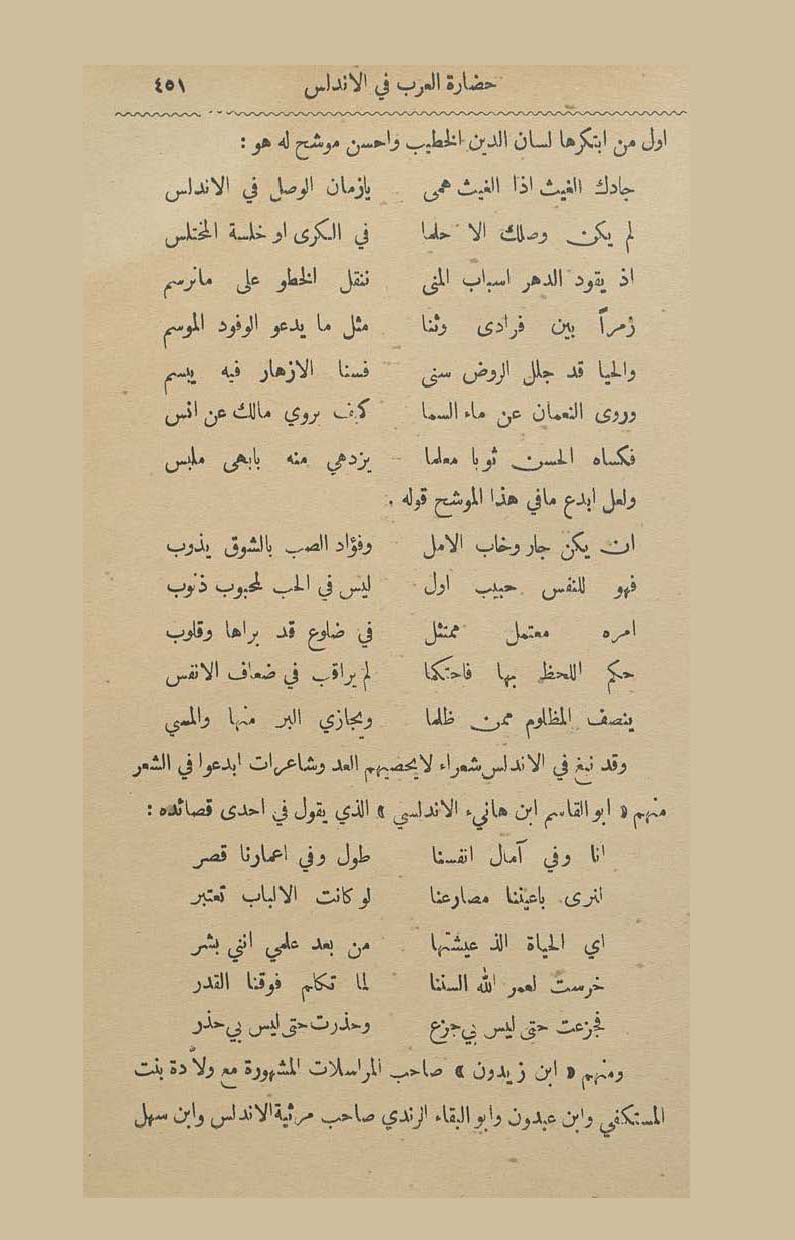 حضارة العرب في الاندلس ٤٥١
اول من ابتكرها لسان الدين الخطيب واحسن موشح له هو :
جادك الغيث اذا الغيث همى يازمان الوصل في الاندلس
لم يكن وصلك الا حلما في الكرى او خلسة المختلس
اذ يقود الدهر اسباب المنى ننقل الخطو على مانرسم
زمراً بين فرادى وثنا مثل ما يدعو الوفود الموسم
والحيا قد جلل الروض سنى فسنا الازهار فيه يبسم
وروى النعمان عن ماء السما كيف يروي مالك عن انس
فكساه الحسن ثوبا معلما يزدهي منه بابهى ملبس
ولعل ابدع مافي هذا الموشح قوله .
ان يكن جار وخاب الامل وفؤاد الصب بالشوق يذوب
فهو للنفس حبيب اول ليس في الحب لمحبوب ذنوب
امره معتمل ممتثل في ضلوع قد براها وقلوب
حكم اللحظ بها فاحتكما لم يراقب في ضعاف الانفس
ينصف المظلوم ممن ظلما ويجازي البر منها والمسي
وقد نبغ في الاندلس شعراء لايحصيهم العد وشاعرات ابدعوا في الشعر
منهم « ابو القاسم ابن هانيء الاندلسي » الذي يقول في احدى قصائده :
انا وفي آمال انفسنا طول وفي اعمارنا قصر
لنرى باعيننا مصارعنا لو كانت الالباب تعتبر
اي الحياة الذ عيشتها من بعد علمي انني بشر
خرست لعمر الله السننا لما تكلم فوقنا القدر
فجزعت حتى ليس بي جزع وحذرت حتى ليس بي حذر
ومنهم « ابن زيدون » صاحب المراسلات المشهورة مع ولاّدة بنت
المستكفي وابن عبدون وابو البقاء الرندي صاحب مرثية الاندلس وابن سهل